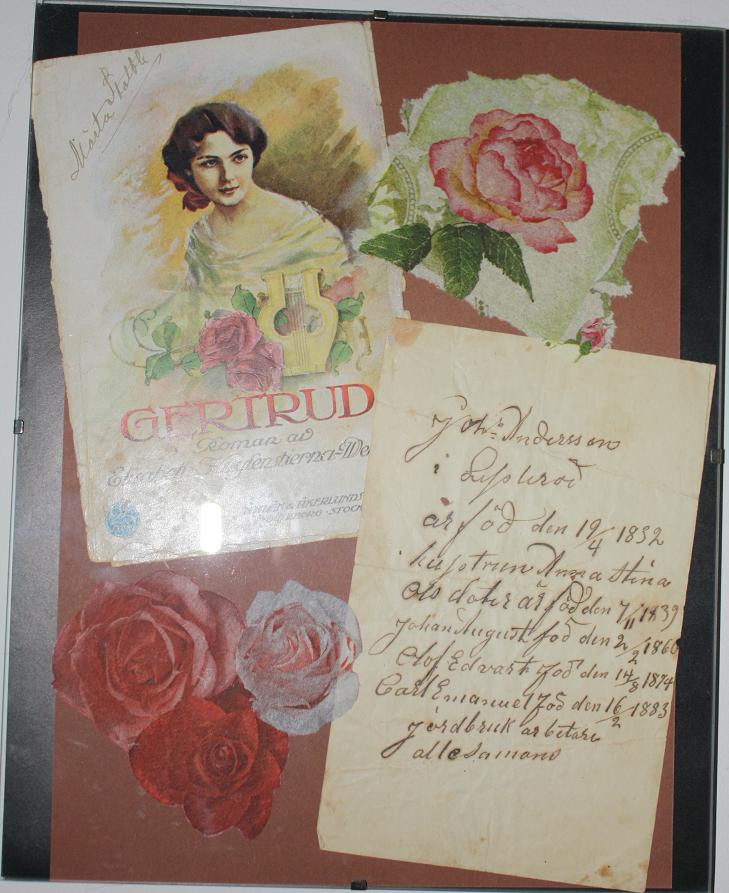 Märta
GERTRUD
Roman av
ÅKERLUNDS
Joh:s Andersson
i
är föd den 19/4 1832
Anna Stina
Ols doter är föd den 7/11 1839
Johan August föd den 2/2 1860
Olof Edvart föd den 14/8 1874
Carl Emanuel föd den 16/2 1883
jordbruk arbetare
allesamans